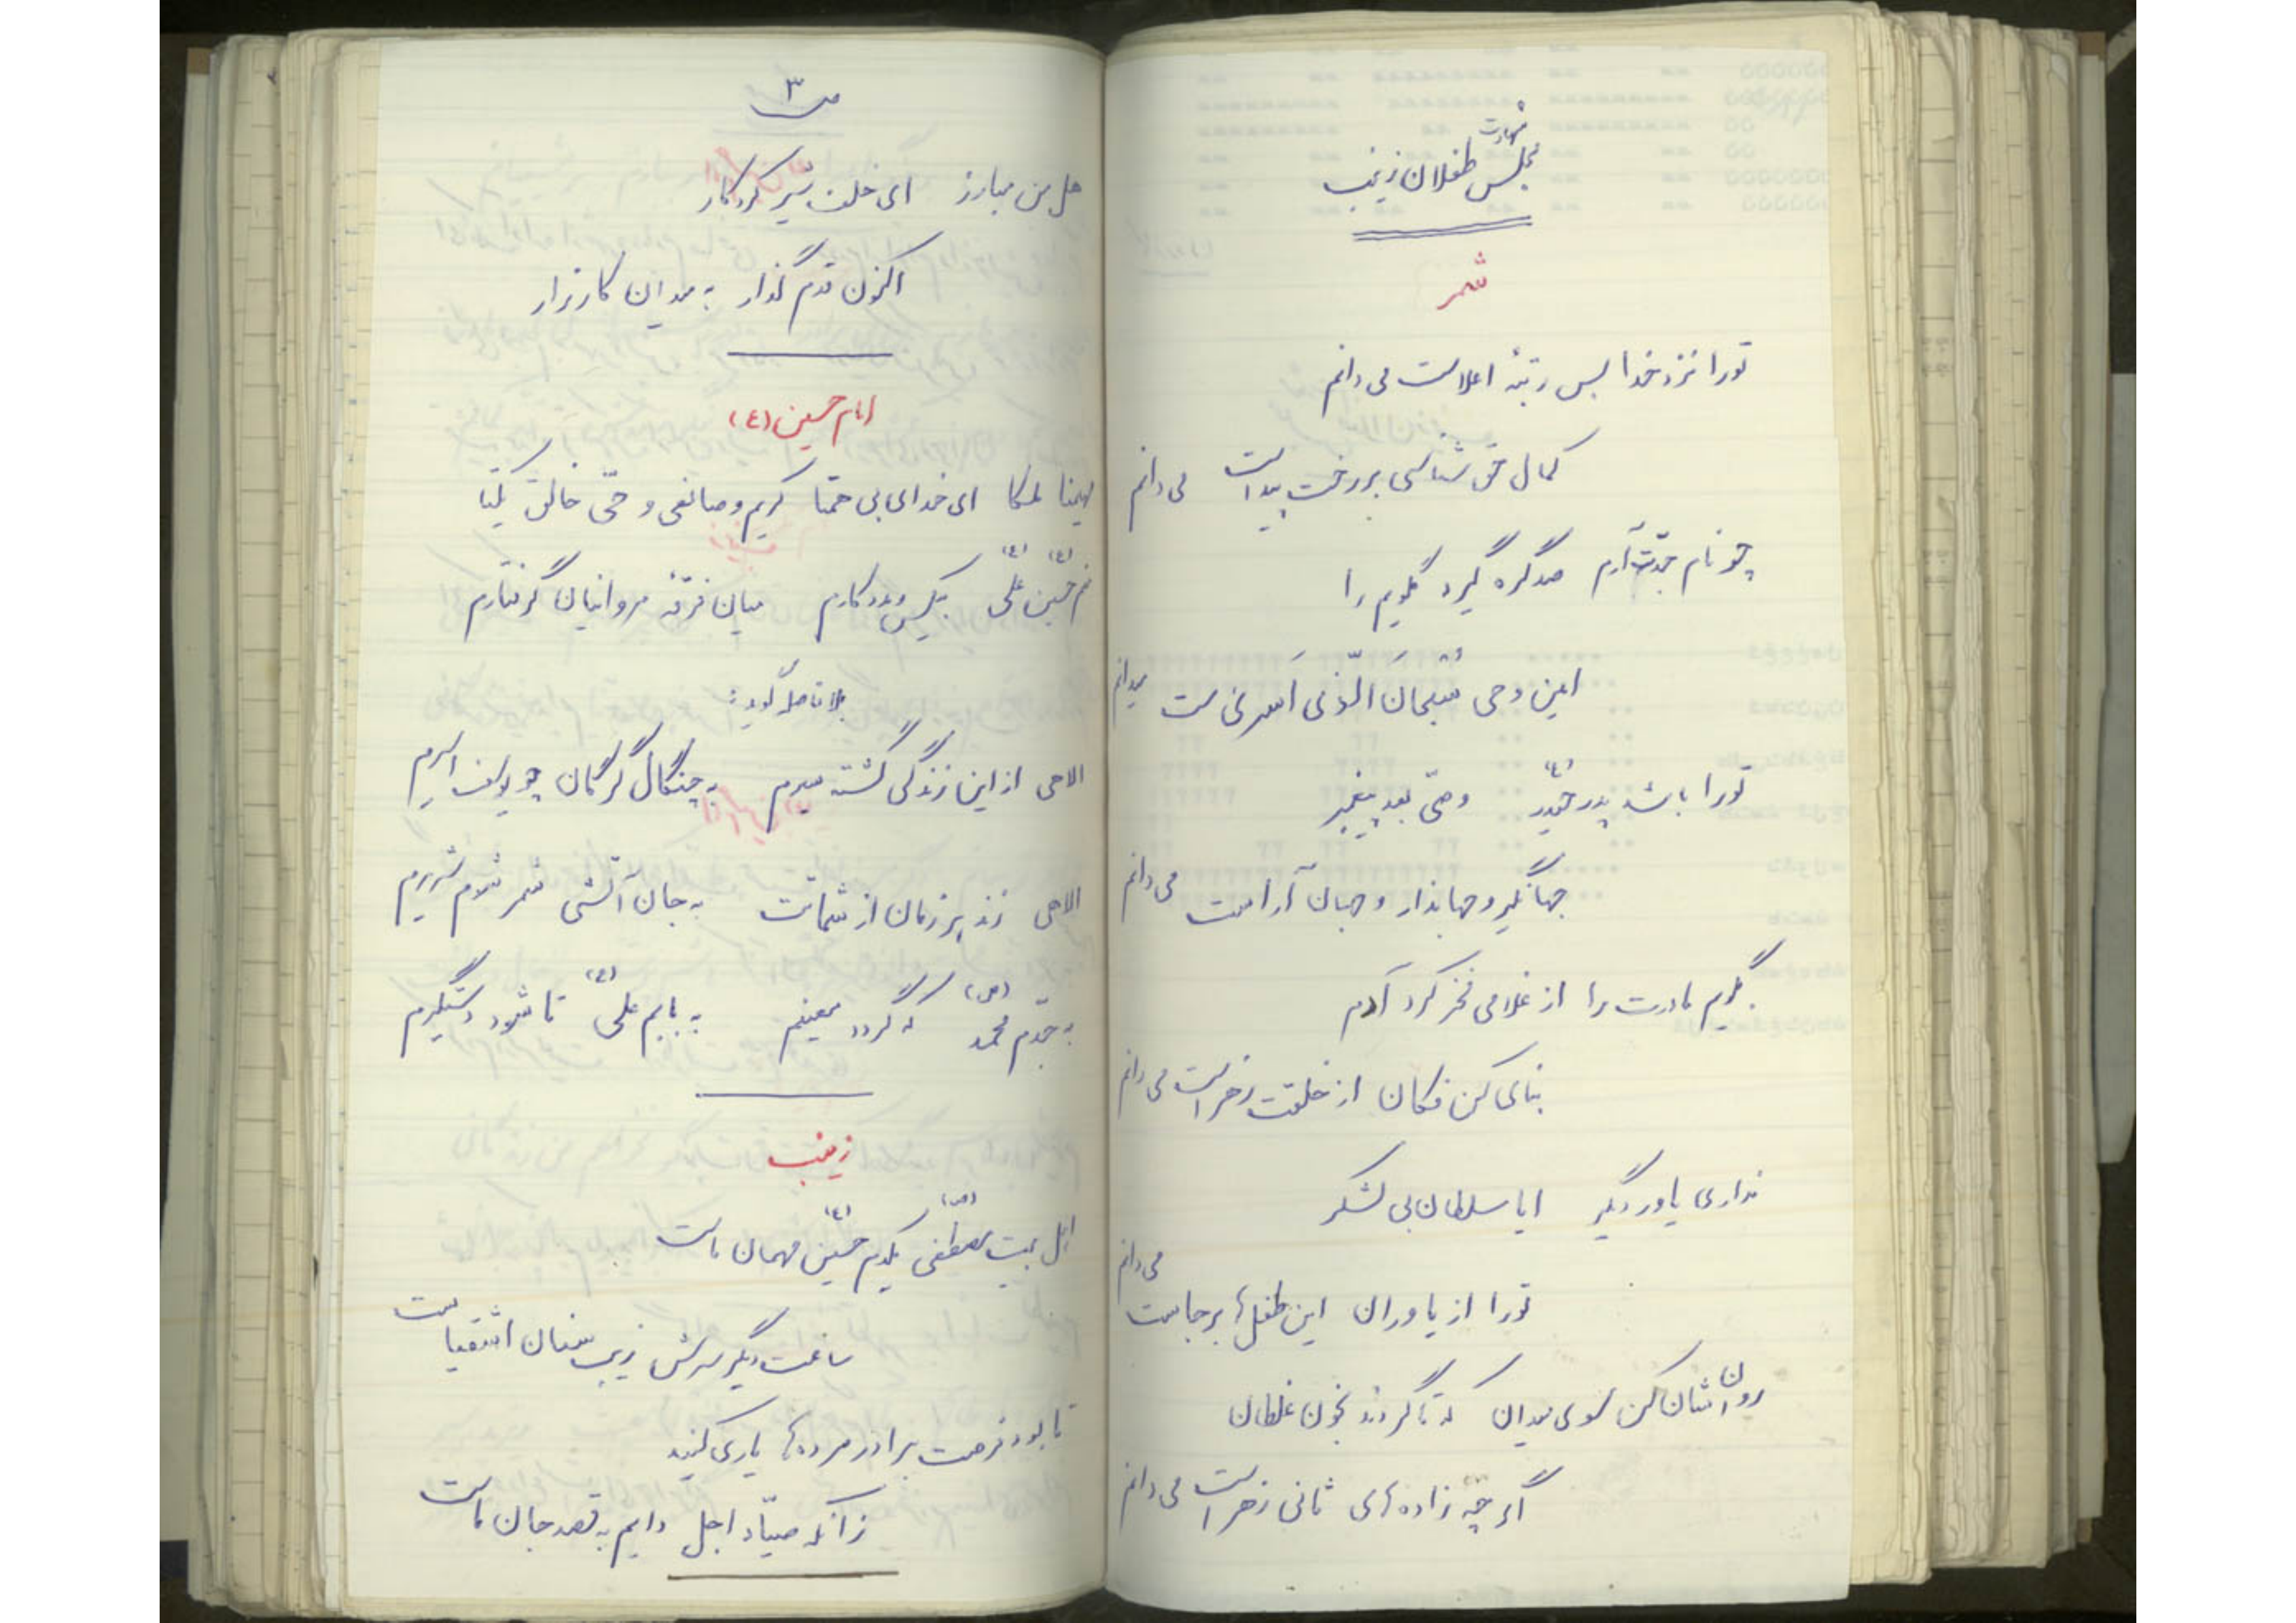 مجلس شهادت طفلان زینب
شمر
تورا نزد خدا بس رتبهٔ اعلاست می دانم
کمال حق شناسی بر رخت پیداست می دانم
چو نام جدّت آرم صد گره گیرد گلویم را
امین وحی سُبحانَ الّذی اَسری ست میدانم
تورا باشد پدر حیدر (ع) وصّی بعد پیغمبر
جهانگیر و جهاندار و جهان آراست می دانم
بگویم مادرت را از غلامی فخر کرد آدم
بنای کن فکان از خلقت زهراست می دانم
نداری یاور دیگر ایا سلطان بی لشکر
تورا از یاوران این طفل ها برجاست می دانم
روان اشان کن سوی میدان که تا گردند بخون غلطان
اگر چه زاده های ثانی زهراست می دانم
ص ۳
هل من مبارز ای خلف شیر کردگار
اکنون قدم گذار به میدان کارزار
امام حسین (ع)
مهیمنا ملکا ای خدای بی همتا کریم و صانعی و حّی خالق یکتا
منم حسین (ع) علی (ع) بیکس و مددکارم میان فرقهٔ مروانیان گرفتارم
بلافاصله گوید:
الاهی از این زندگی گشته سیرم به چنگال گرگان چو یوسف اسیرم
الاهی زند هر زمان از شماتت به جان آتشی شمر شوم شریرم
به جدّم محمد (ص) که گردد معینم به بابم علی (ع) تا شود دستگیرم
زینب
اهل بیت مصطفی (ص) یکدم حسین (ع) مهمان ماست
ساعت دیگر سرش زیب سنان اشقیاست
تا بود فرصت برادر مرده ها یاری کنید
زانکه صیّاد اجل دایم به قصد جان ماست